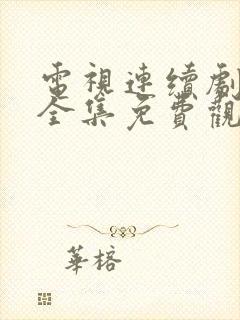 電視連續劇
全集免費觀
華榕